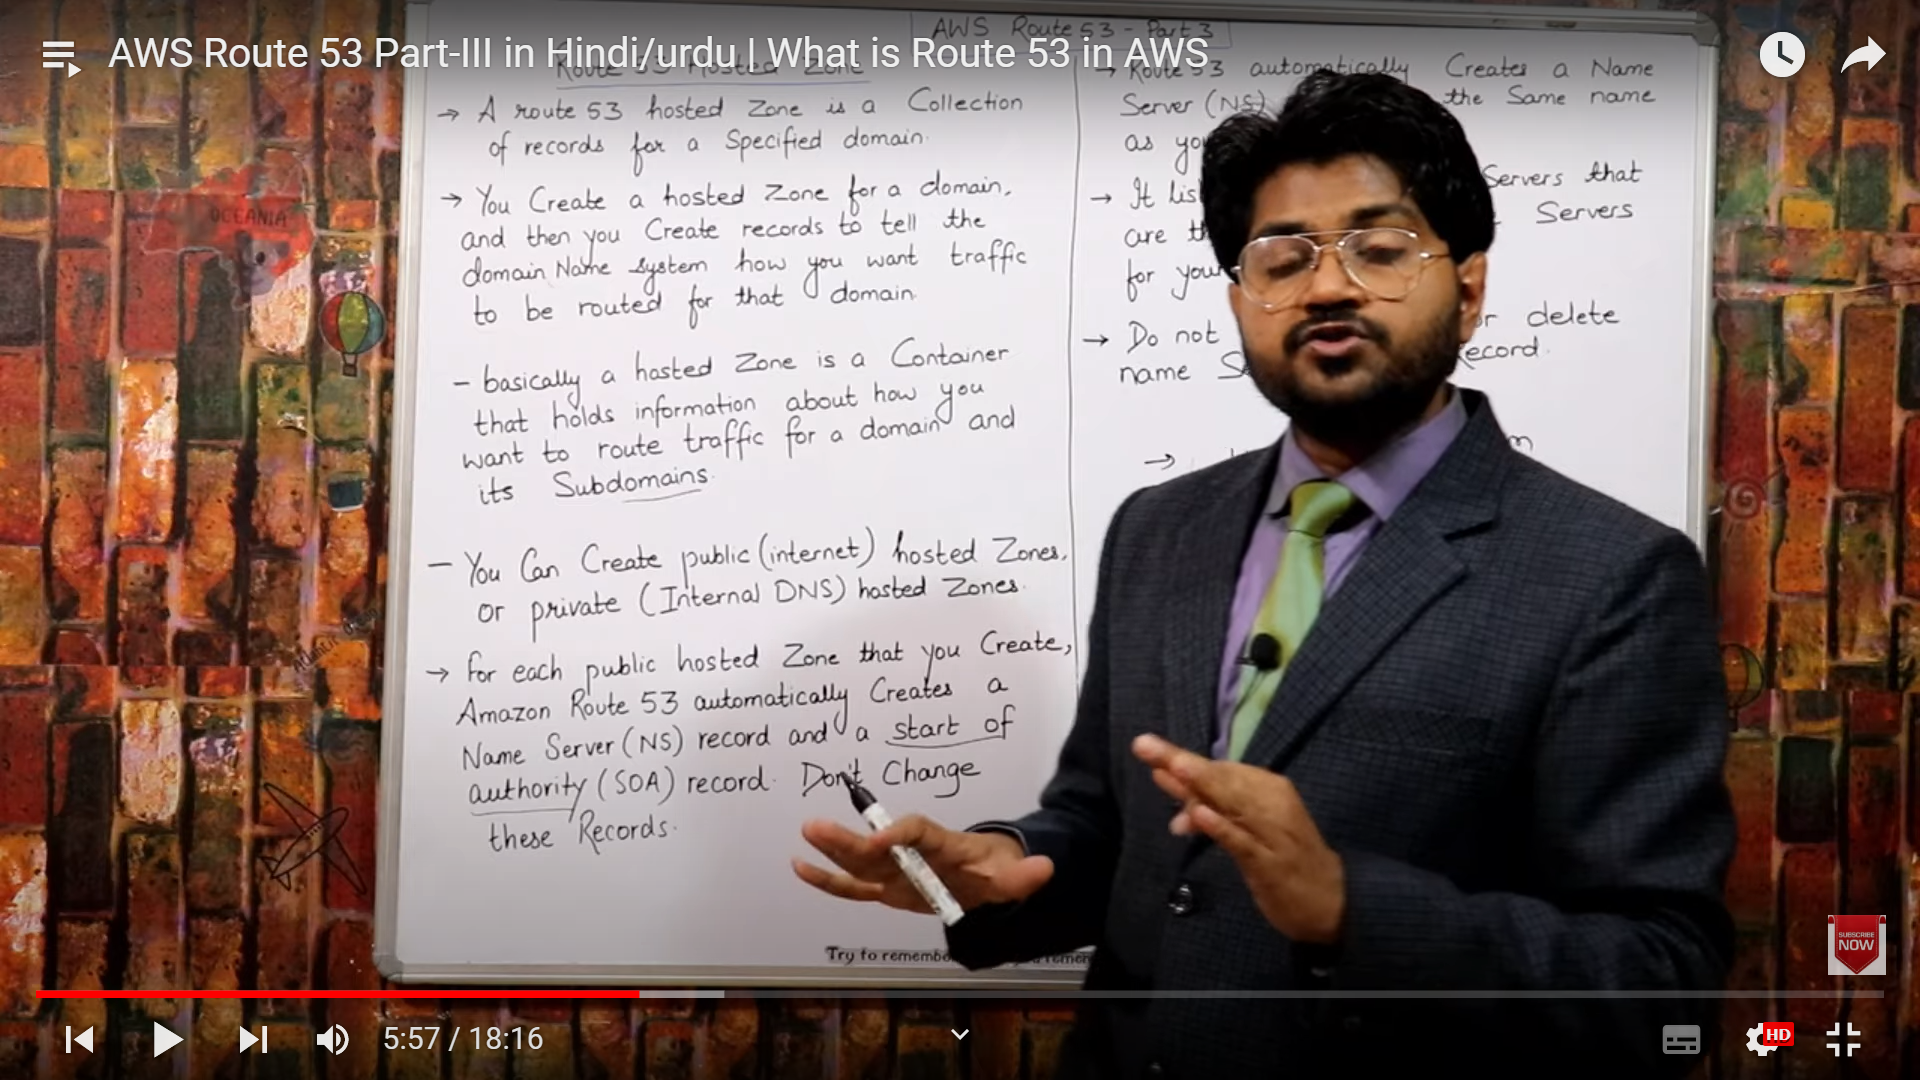 AWS Route 53 Part-III in Hindi/urdu | What is Route 53 in AWS
AWS Route 53 - Part 3
Route 53 Hosted Zone
→ A route 53 hosted Zone is a Collection
of records for a Specified domain.
→ You Create a hosted Zone for a domain,
and then you Create records to tell the
domain Name system how you want traffic
to be routed for that domain.
- basically a hosted Zone is a Container
that holds information about how you
want to route traffic for a domain and
its Subdomains.
- You Can Create public (internet) hosted Zones,
or private (Internal DNS) hosted Zones.
→ for each public hosted Zone that you Create,
Amazon Route 53 automatically Creates a
Name Server (NS) record and a start of
authority (SOA) record. Don't Change
these Records.
→ Route 53 automatically Creates a Name
Server (NS) the Same name
as
→ It Servers that
are Servers
for your
→ Do not or delete
name Record.
→
OCEANIA
Try to
SUBSCRIBE
NOW
5:57 / 18:16
HD